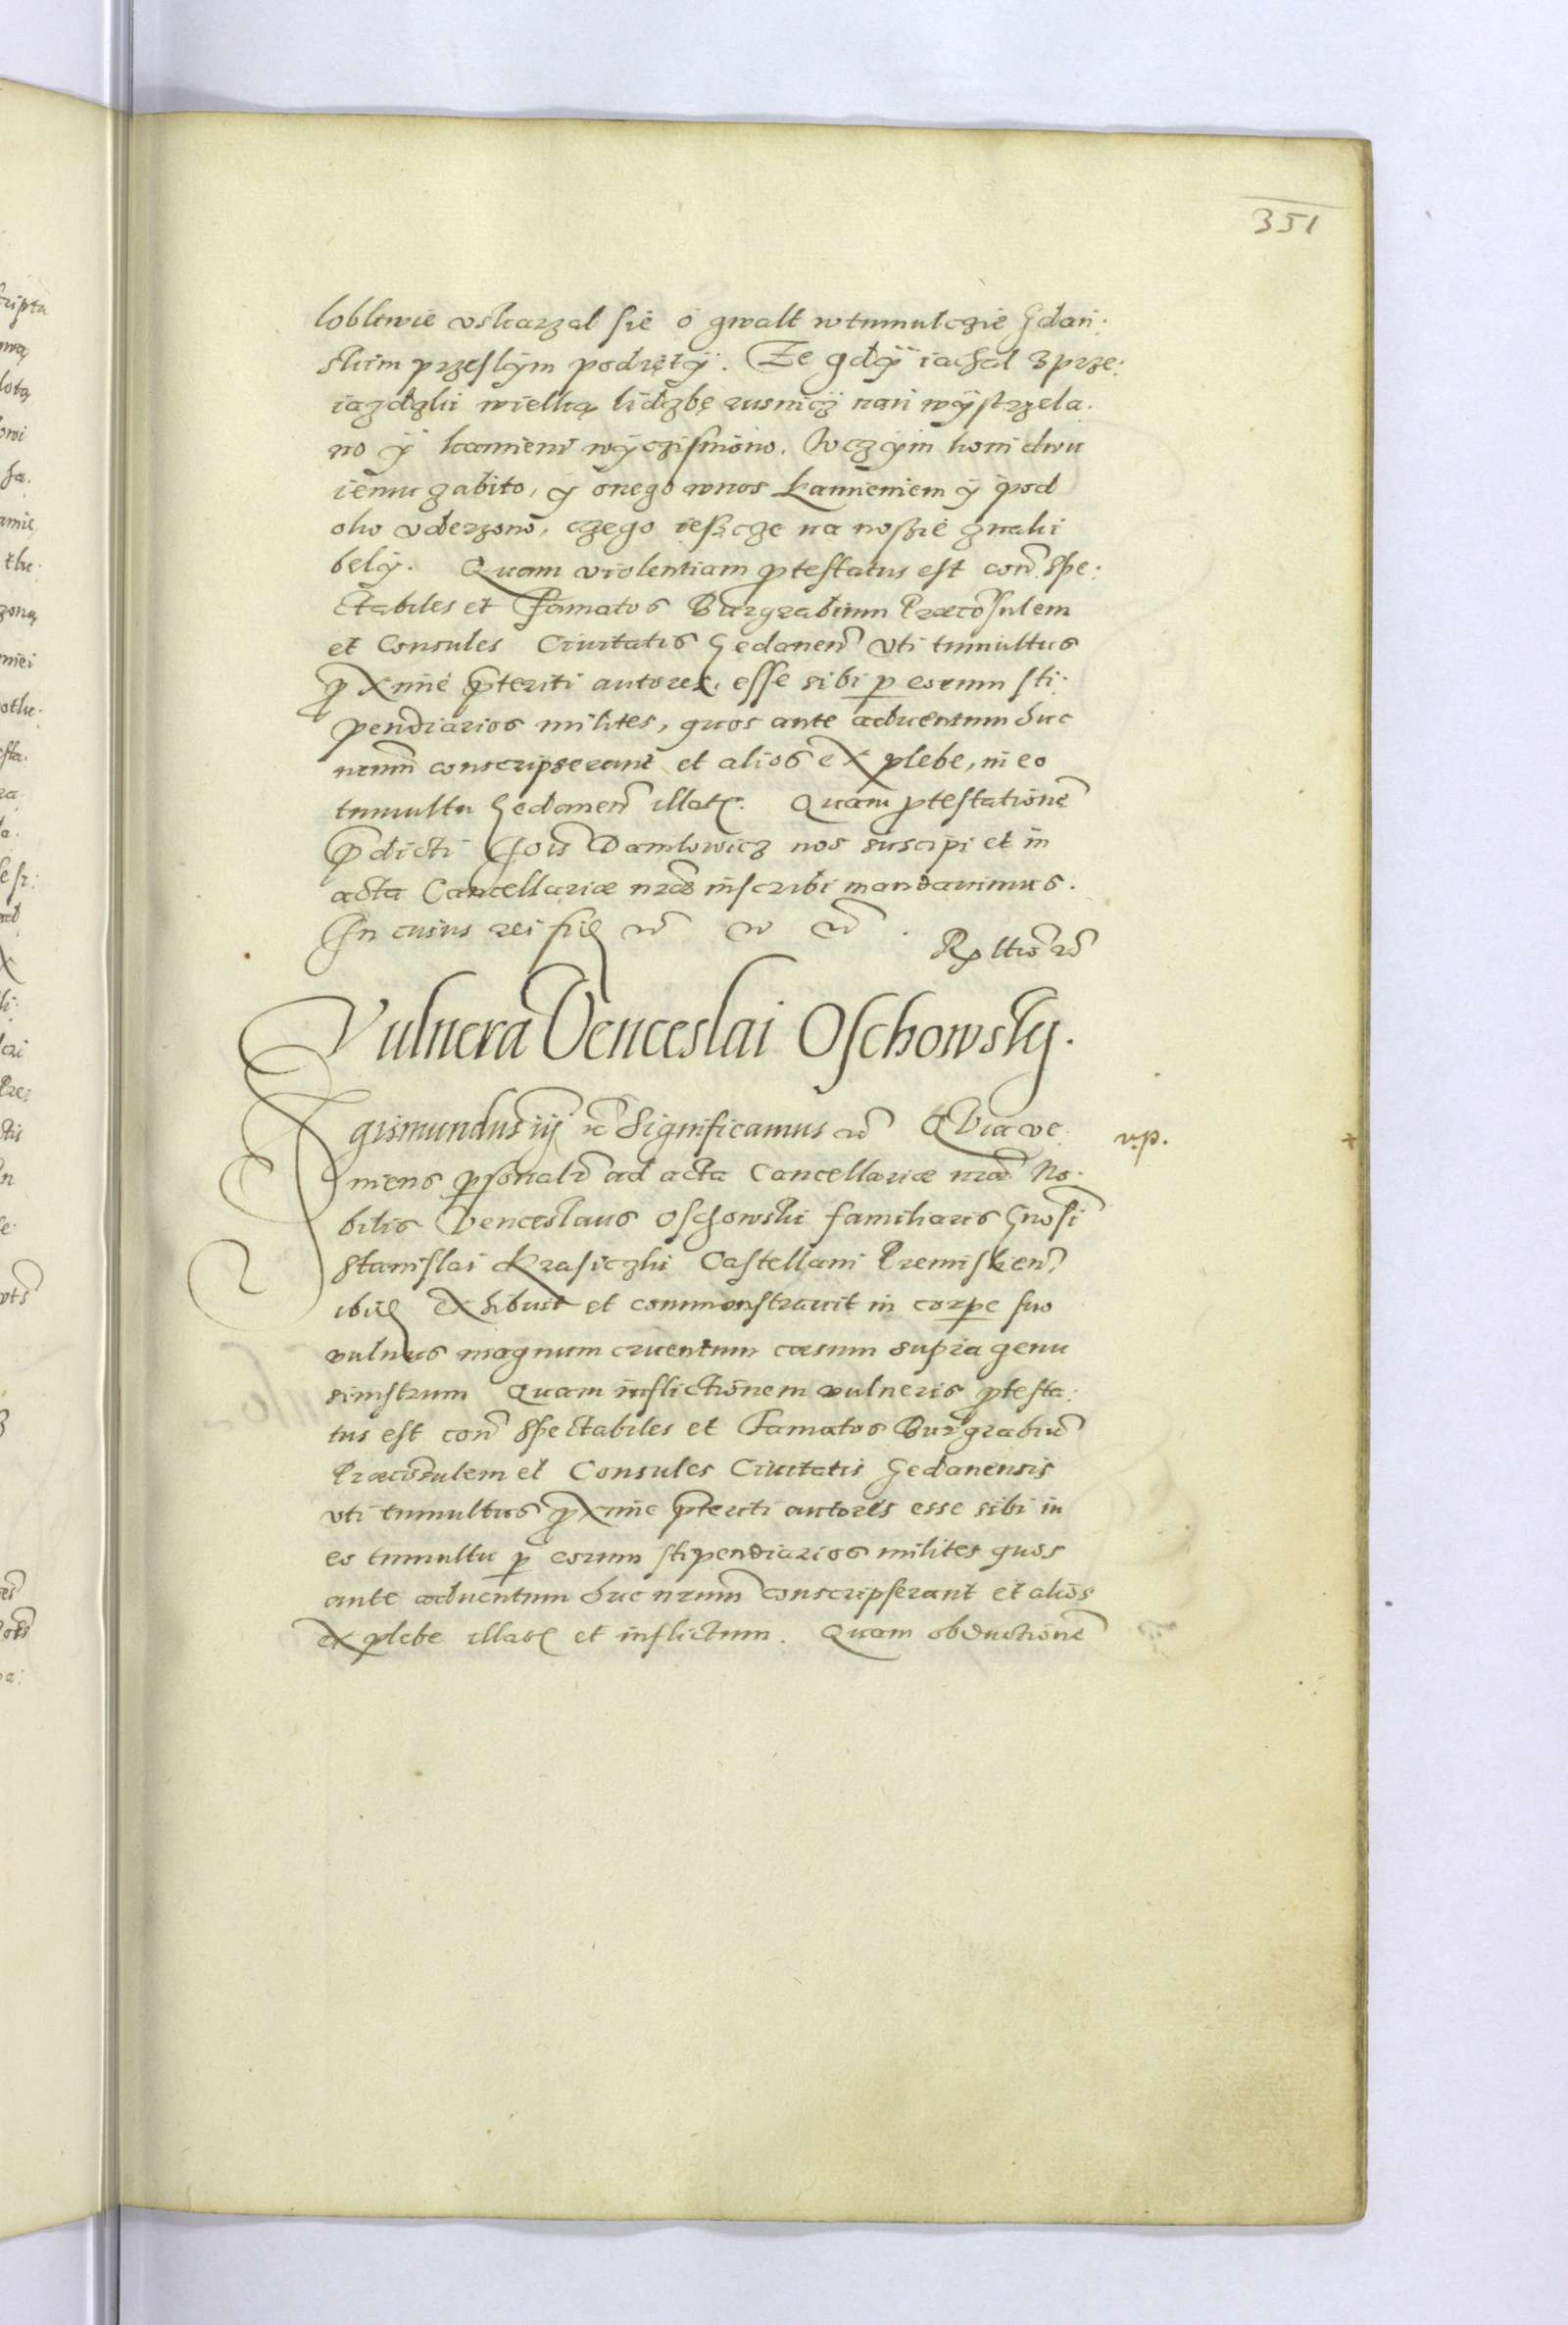 351
loblewie vskarzal sie o gwalt wtumulczie gdań:
skim przeslÿm podiętÿ. Ze gdÿ iachal z prze:
iazdzki wielką lidzbę rusnicz nań wÿstrzela.
no ÿ kamieni wÿczisniono. W czÿm koni dwu
iemu zabito, ÿ onego w nos kamieniem ÿ pod
oko vderzono, czego ieszcze na noszie znaki
belÿ. Quam violentiam ptestatus est con Spe:
ctabiles et Famatos Burgrabium Præcosulem
et Consules Ciuitatis Gedanen vti tumultus
pxime pteriti autores, esse sibi p eorum sti:
pendiarios milites, quos ante aduentum huc
nrum conscripserant et alios ex plebe, in eo
tumultu Gedanen illatę. Quam ptestatione
pdicti Jois Danilowicz nos suscipi et in
acta Cancellariæ nræ inscribi mandauimus.
In cuius rei fię
Vulnera Venceslai Oschowsky.
Sigismundus iij Significamus QVia ve
v.p.
niens psonalr ad acta Cancellariæ nræ No:
bilis Venceslaus Oschowski familiaris Gnosi
Stanislai Krasiczki Castellani Premislien
ibidę exhibuit et commonstrauit in corpe suo
vulnus magnum cruentum cæsum supra genu
sinistrum Quam inflictionem vulneris ptesta:
tus est con Spectabiles et Famatos Burgrabiu
Præcosulem et Consules Ciuitatis Gedanensis
vti tumultus pxime pteriti autores esse sibi in
eo tumultu p eorum stipendiarios milites quos
ante aduentum huc nrum conscripserant et alios
ex plebe illatę et inflictum. Quam obductione